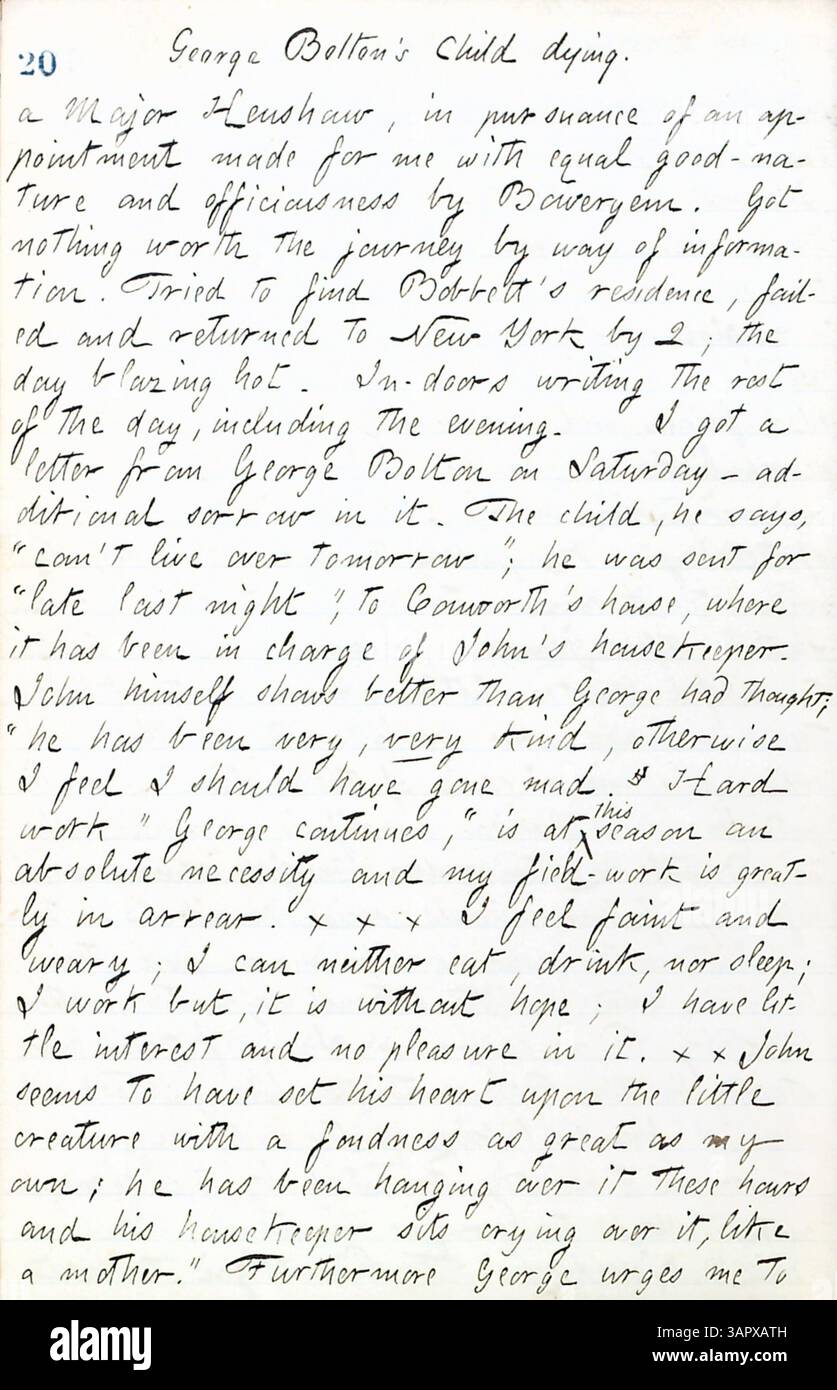 20
George Bolton's Child dying.
a Major Henshaw, in pursuance of an ap-
pointment made for me with equal good-na-
ture and officiousness by Boweryem. Got
nothing worth the journey by way of informa-
tion. Tried to find Bobbett's residence, fail-
ed and returned to New York by 2; the
day blazing hot. In-doors writing the rest
of the day, including the evening. I got a
letter from George Bolton on Saturday - ad-
ditional sorrow in it. The child, he says,
"can't live over tomorrow"; he was sent for
"late last night", to Conworth's house, where
it has been in charge of John's housekeeper.
John himself shows better than George had thought;
"he has been very, very kind, otherwise
I feel I should have gone mad." Hard
work" George continues, "is at this season an
absolute necessity and my field-work is great-
ly in arrear. x x x I feel faint and
weary; I can neither eat, drink, nor sleep;
I work but, it is without hope; I have lit-
tle interest and no pleasure in it. x x John
seems to have set his heart upon the little
creature with a fondness as great as my
own; he has been hanging over it these hours
and his housekeeper sits crying over it, like
a mother." Furthermore George urges me to
alamy
Image ID: 3APXATH
www.alamy.com